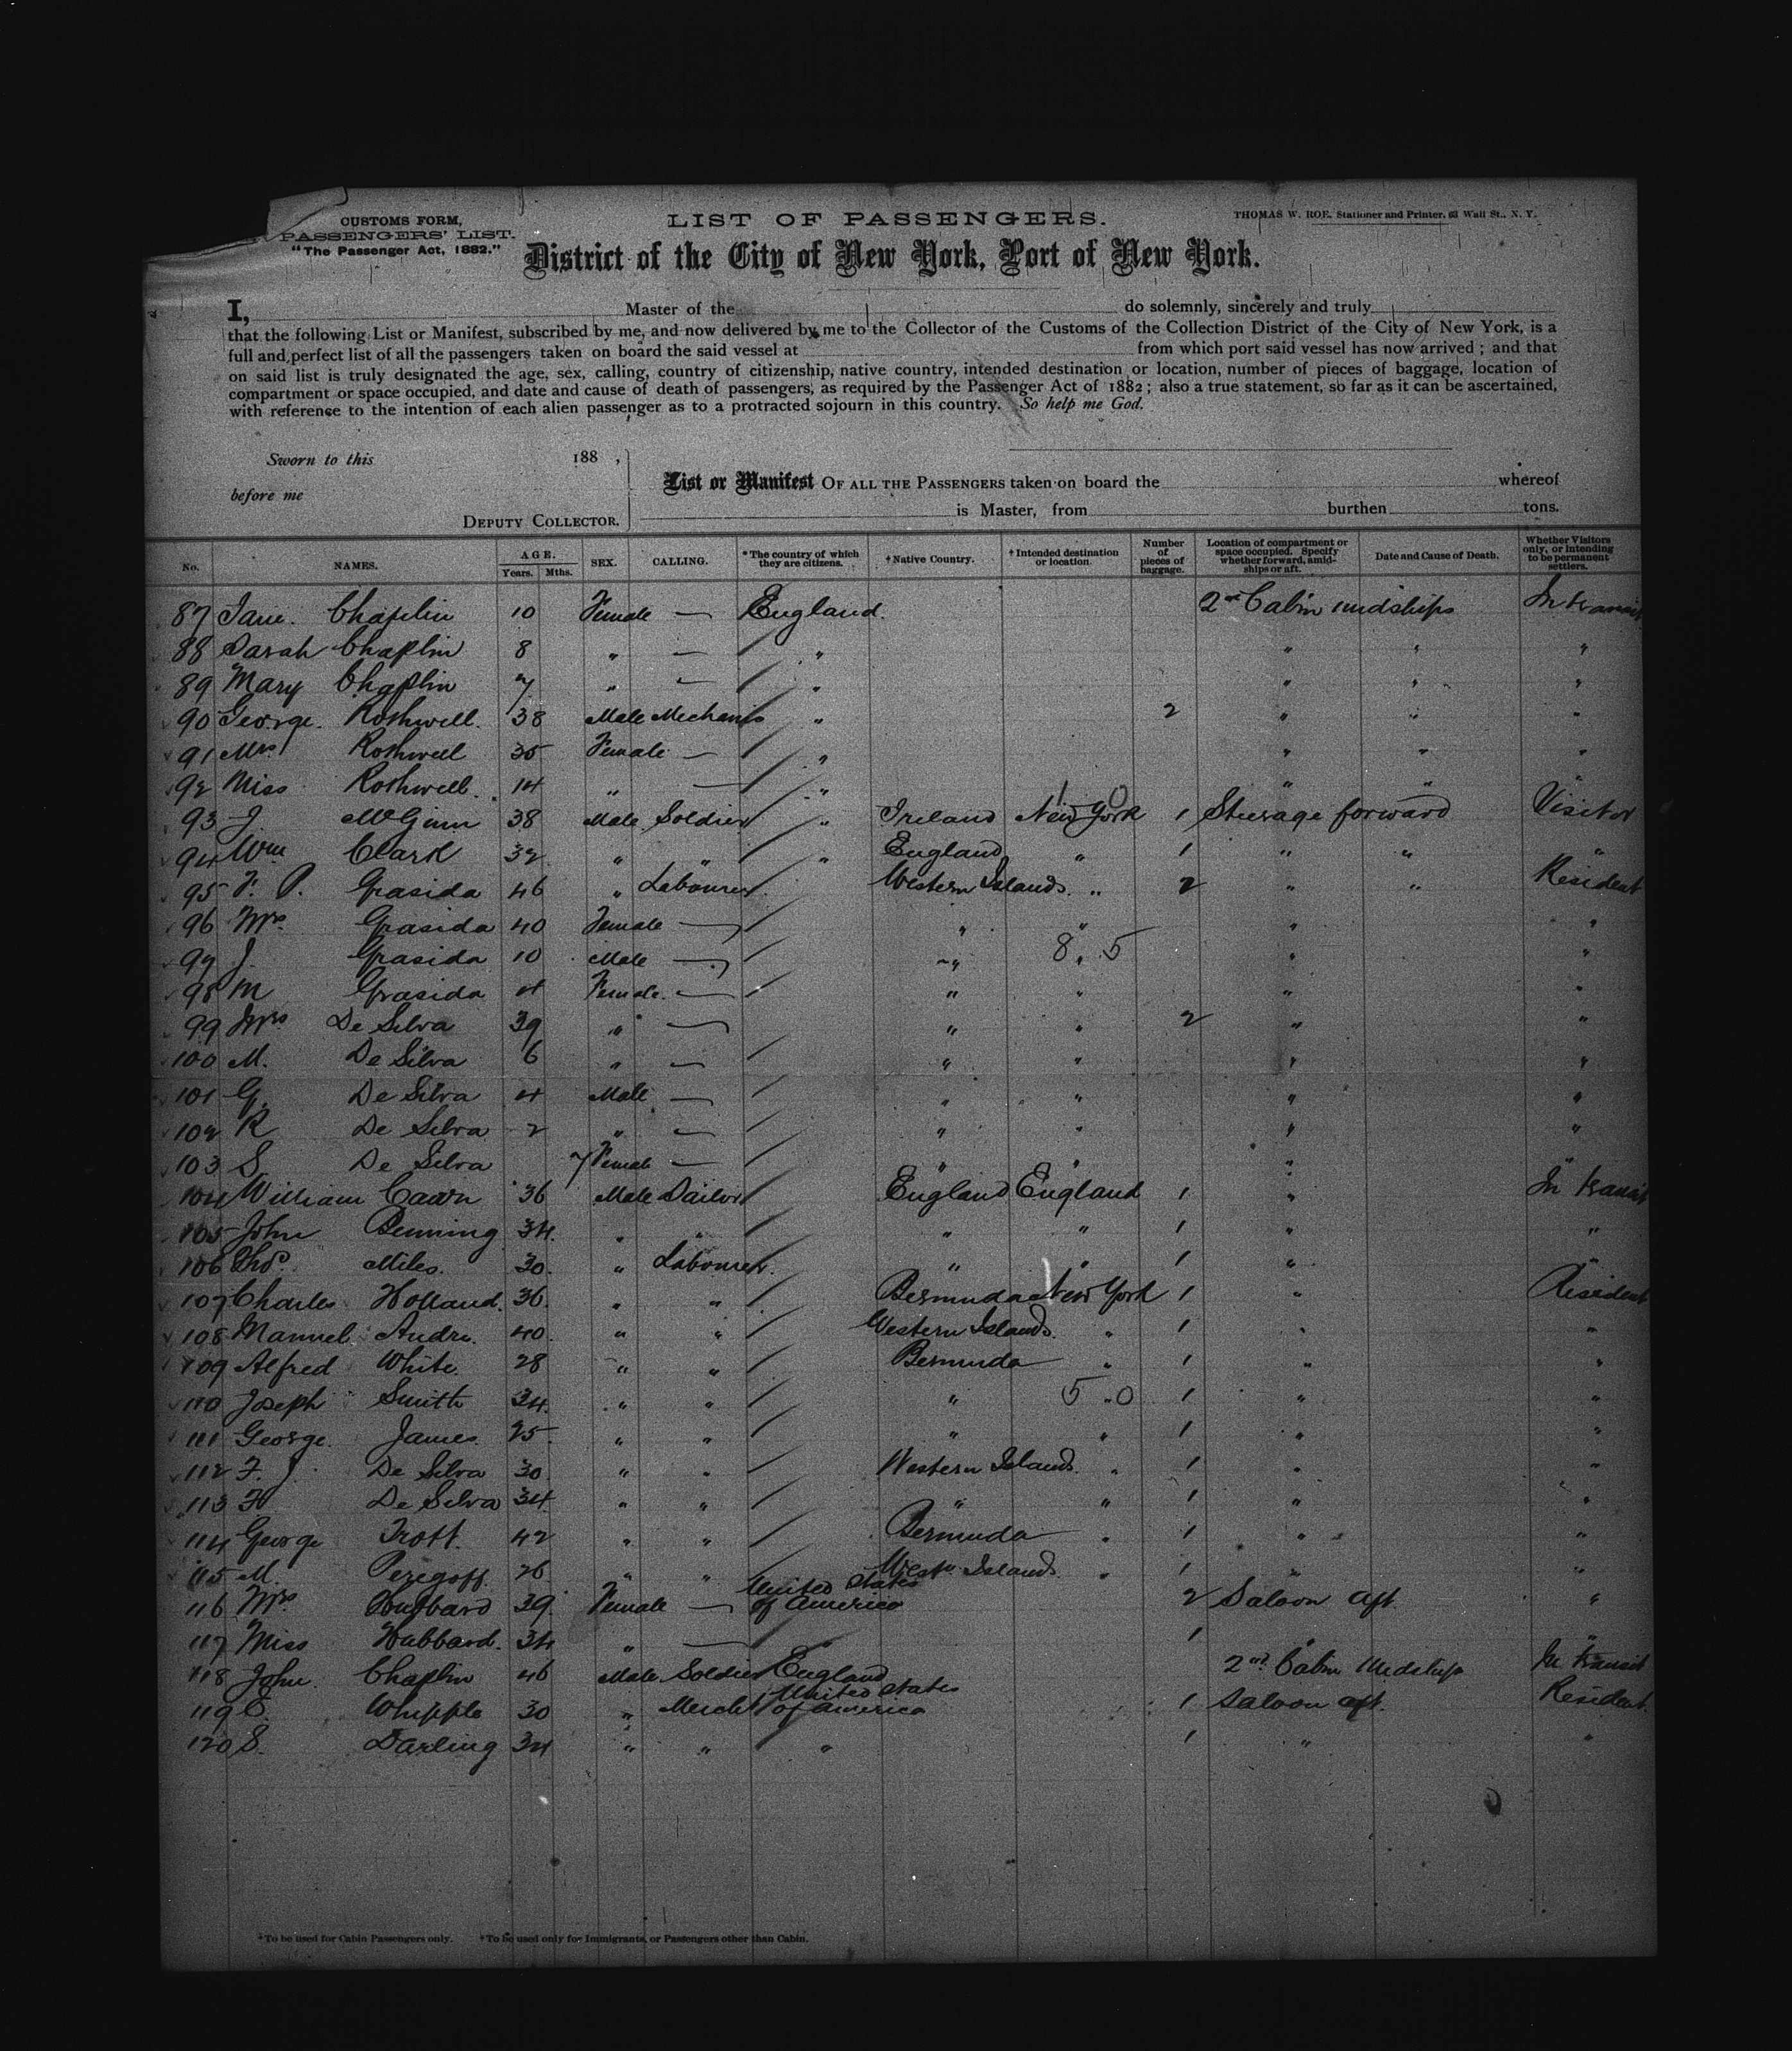 CUSTOMS FORM,
PASSENGERS' LIST.
"The Passenger Act, 1882."
LIST OF PASSENGERS.
THOMAS W. ROE, Stationer and Printer, 63 Wall St., N. Y.
District of the City of New York, Port of New York.
I, Master of the do solemnly, sincerely and truly
that the following List or Manifest, subscribed by me, and now delivered by me to the Collector of the Customs of the Collection District of the City of New York, is a
full and perfect list of all the passengers taken on board the said vessel at from which port said vessel has now arrived ; and that
on said list is truly designated the age, sex, calling, country of citizenship, native country, intended destination or location, number of pieces of baggage, location of
compartment or space occupied, and date and cause of death of passengers, as required by the Passenger Act of 1882 ; also a true statement, so far as it can be ascertained,
with reference to the intention of each alien passenger as to a protracted sojourn in this country. So help me God.
Sworn to this 188 ,
before me
DEPUTY COLLECTOR.
List or Manifest OF ALL THE PASSENGERS taken on board the whereof
is Master, from burthen tons.
No. NAMES. AGE. Years. Mths. SEX. CALLING. *The country of which they are citizens. †Native Country. †Intended destination or location. Number of pieces of baggage. Location of compartment or space occupied. Specify whether forward, amidships or aft. Date and Cause of Death. Whether Visitors only, or intending to be permanent settlers.
87 Jane Chaplin 10 Female — England 2nd Cabin midships In transit
88 Sarah Chaplin 8 " — " " " "
89 Mary Chaplin 7 " — " " " "
90 George Rothwell 38 Male Mechanic " 2 " " "
91 Mrs Rothwell 35 Female — " " " "
92 Miss Rothwell 14 " — " " " "
93 J McGinn 38 Male Soldier " Ireland New York 1 Steerage forward Visitor
94 Wm Clark 32 " " " England " 1 " " "
95 F. P. Grasida 46 " Labourer Western Islands " 2 " " Resident
96 Mrs Grasida 40 Female — " " " "
97 J Grasida 10 Male — " 8 " 5 " "
98 M Grasida 4 Female — " " " "
99 Mrs De Silva 39 " — " " 2 " "
100 M. De Silva 6 " — " " " "
101 G. De Silva 4 Male — " " " "
102 R De Silva 2 " — " " " "
103 S. De Silva 7 Female — " " " "
104 William Cawn 36 Male Sailor England England 1 " In transit
105 John Benning 34 " " " " 1 " "
106 Thos. Miles 30 " Labourer " " 1 " "
107 Charles Holland 36 " " Bermuda New York 1 " Resident
108 Manuel Andre 40 " " Western Islands " 1 " "
109 Alfred White 28 " " Bermuda " 1 " "
110 Joseph Smith 34 " " " 5 " 0 1 " "
111 George James 25 " " " " 1 " "
112 F. J. De Silva 30 " " Western Islands " 1 " "
113 F De Silva 34 " " " " 1 " "
114 George Trott 42 " " Bermuda " 1 " "
115 M. 26 " " Westn Islands " 1 " "
116 Mrs Hubbard 39 Female — United States of America 2 Saloon aft "
117 Miss Hubbard 34 " — " 1 " "
118 John Chaplin 46 Male Soldier England 2nd Cabin Midships In transit
119 Whipple 30 " Mercht United States of America 1 Saloon aft. Resident
120 S. Darling 34 " " " 1 " "
*To be used for Cabin Passengers only. †To be used only for Immigrants, or Passengers other than Cabin.